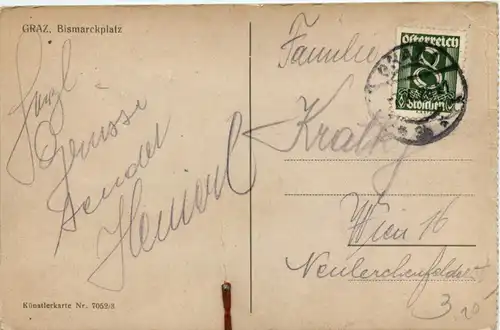 GRAZ, Bismarckplatz
Herzl
Grüsse
sendet
Heinerl
Künstlerkarte Nr. 7052/3
Familie
Kratky
Wien 16
Neulerchenfelderstr
Österreich
8
Groschen
GRAZ
3